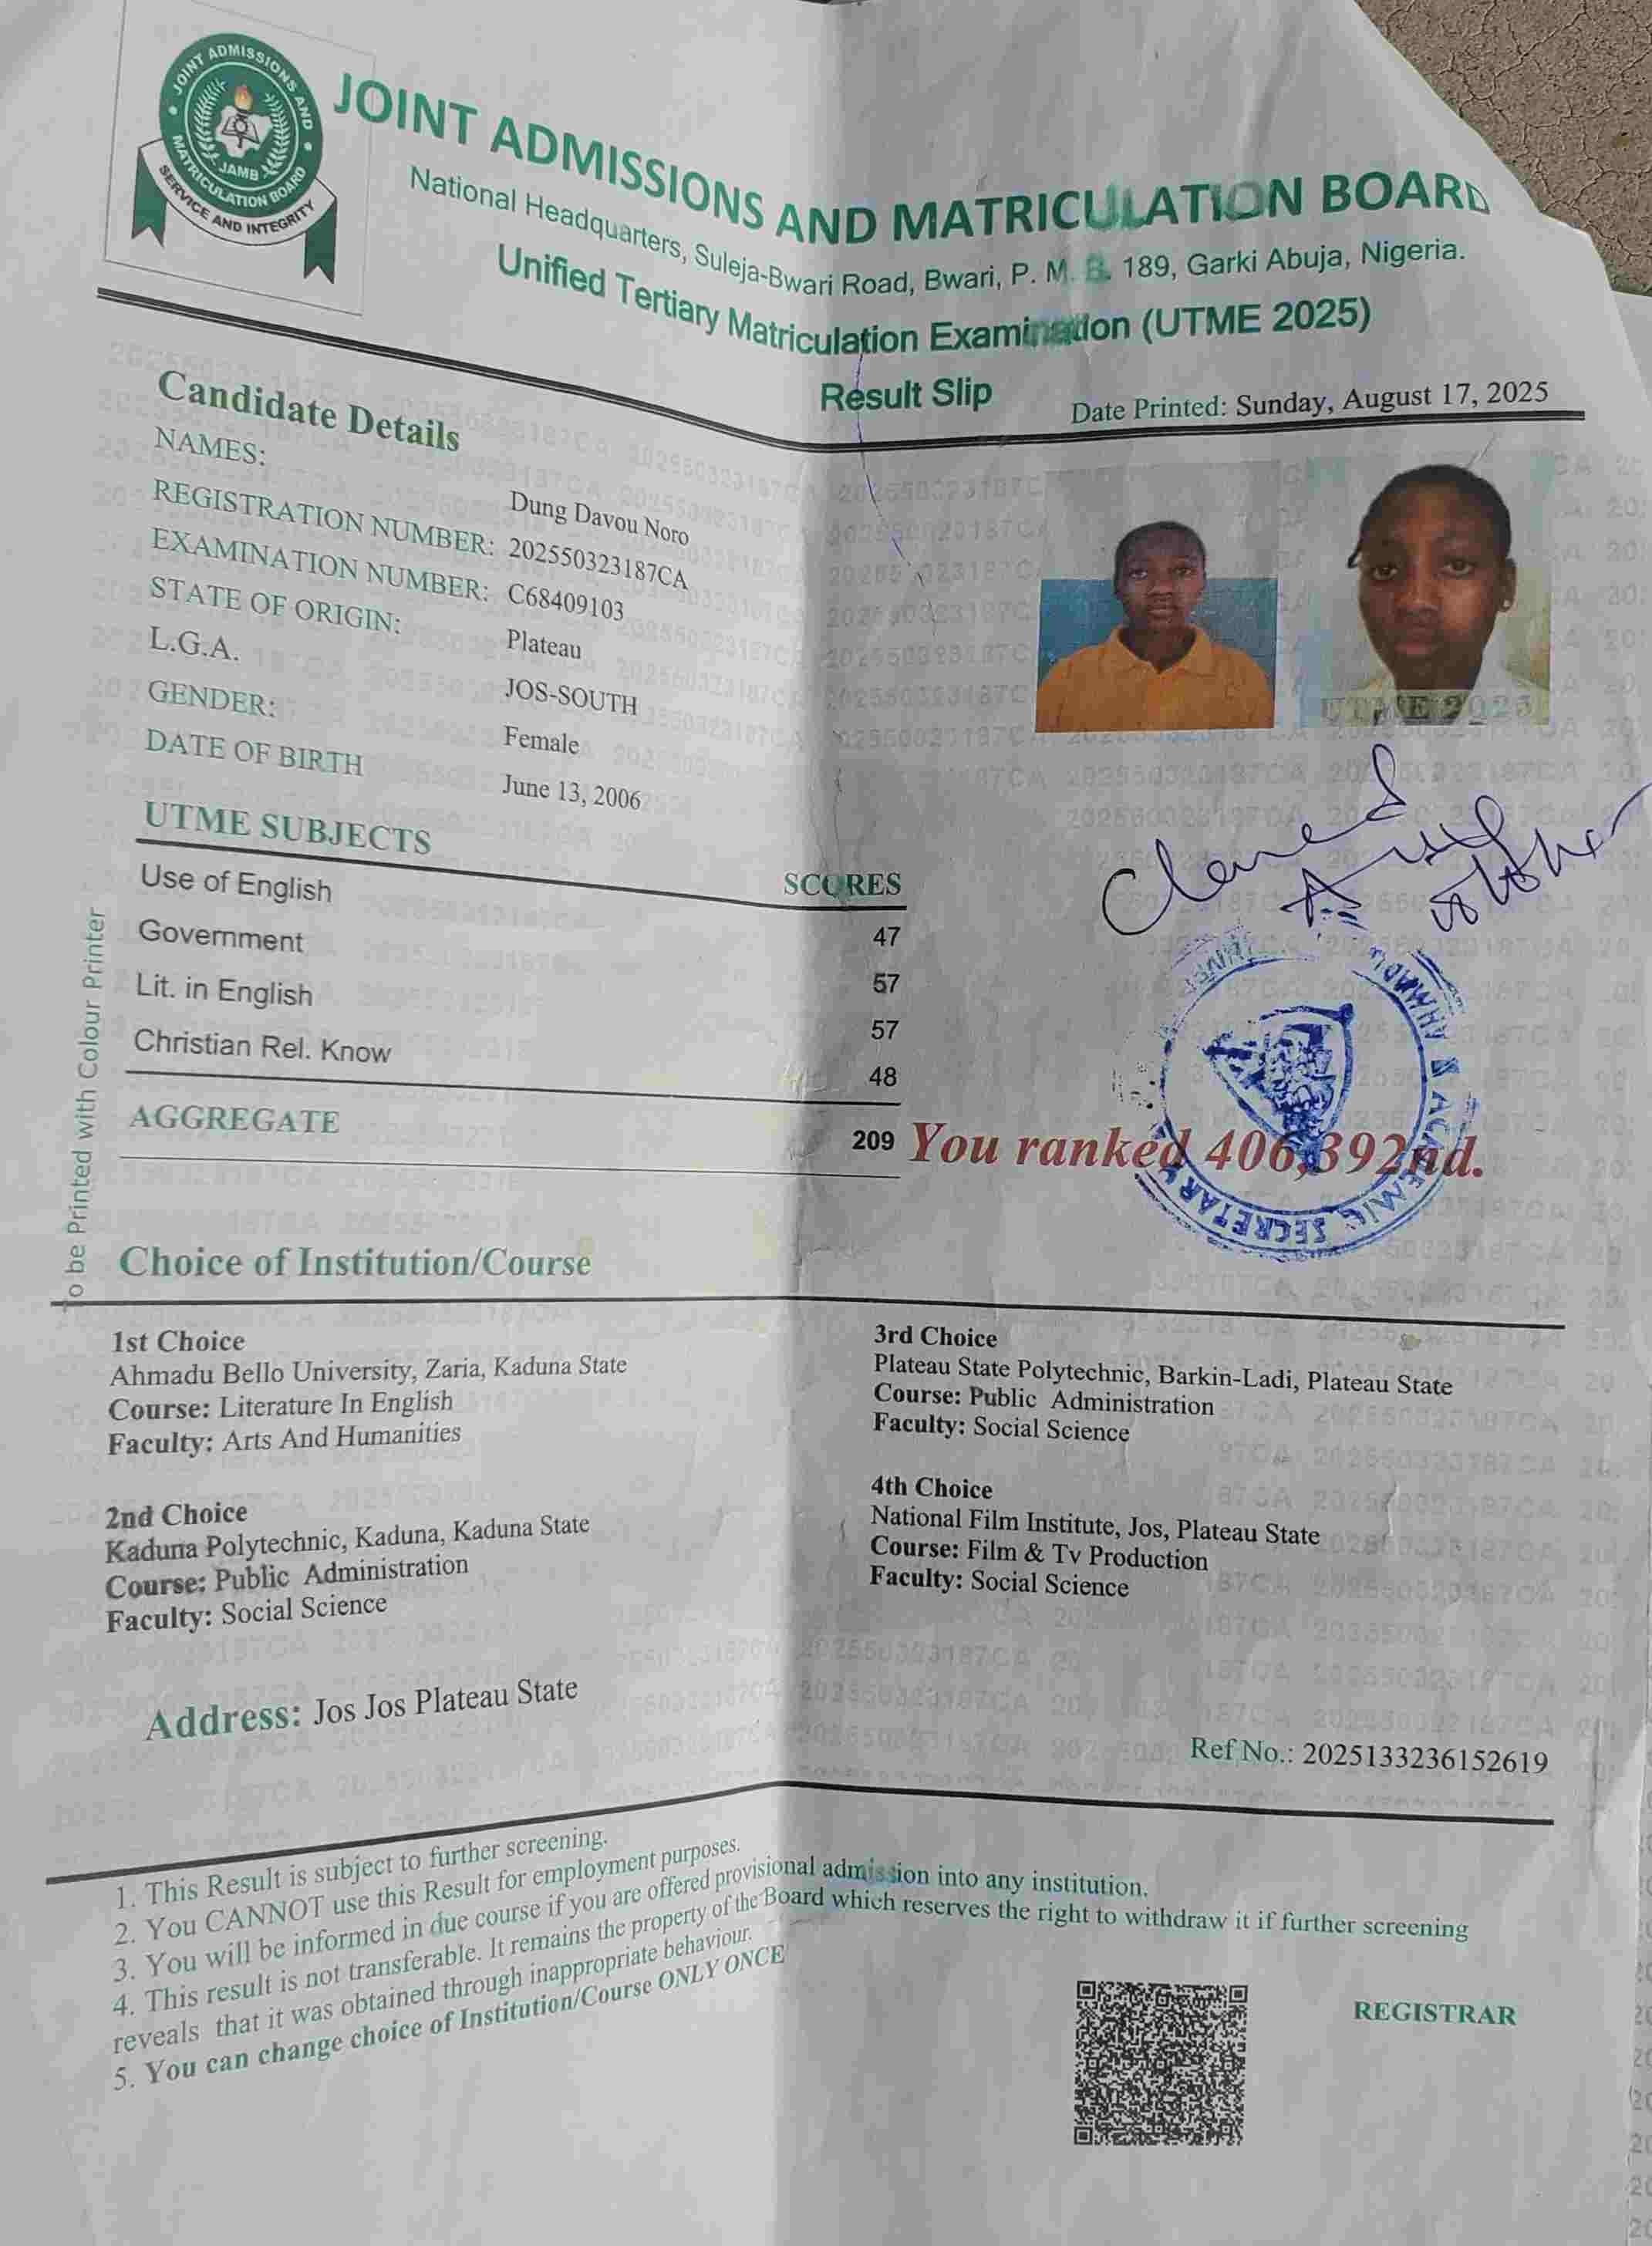 JOINT ADMISSIONS AND MATRICULATION BOARD
JAMB
SERVICE AND INTEGRITY
JOINT ADMISSIONS AND MATRICULATION BOARD
National Headquarters, Suleja-Bwari Road, Bwari, P. M. B. 189, Garki Abuja, Nigeria.
Unified Tertiary Matriculation Examination (UTME 2025)
Result Slip
Date Printed: Sunday, August 17, 2025
Candidate Details
NAMES: Dung Davou Noro
REGISTRATION NUMBER: 202550323187CA
EXAMINATION NUMBER: C68409103
STATE OF ORIGIN: Plateau
L.G.A. JOS-SOUTH
GENDER: Female
DATE OF BIRTH June 13, 2006
UTME 2025
UTME SUBJECTS SCORES
Use of English 47
Government 57
Lit. in English 57
Christian Rel. Know 48
AGGREGATE 209 You ranked 406,392nd.
ACADEMIC SECRETARY
To be Printed with Colour Printer
Choice of Institution/Course
1st Choice
Ahmadu Bello University, Zaria, Kaduna State
Course: Literature In English
Faculty: Arts And Humanities
2nd Choice
Kaduna Polytechnic, Kaduna, Kaduna State
Course: Public Administration
Faculty: Social Science
3rd Choice
Plateau State Polytechnic, Barkin-Ladi, Plateau State
Course: Public Administration
Faculty: Social Science
4th Choice
National Film Institute, Jos, Plateau State
Course: Film & Tv Production
Faculty: Social Science
Address: Jos Jos Plateau State
Ref No.: 2025133236152619
1. This Result is subject to further screening.
2. You CANNOT use this Result for employment purposes.
3. You will be informed in due course if you are offered provisional admission into any institution.
4. This result is not transferable. It remains the property of the Board which reserves the right to withdraw it if further screening
reveals that it was obtained through inappropriate behaviour.
5. You can change choice of Institution/Course ONLY ONCE
REGISTRAR